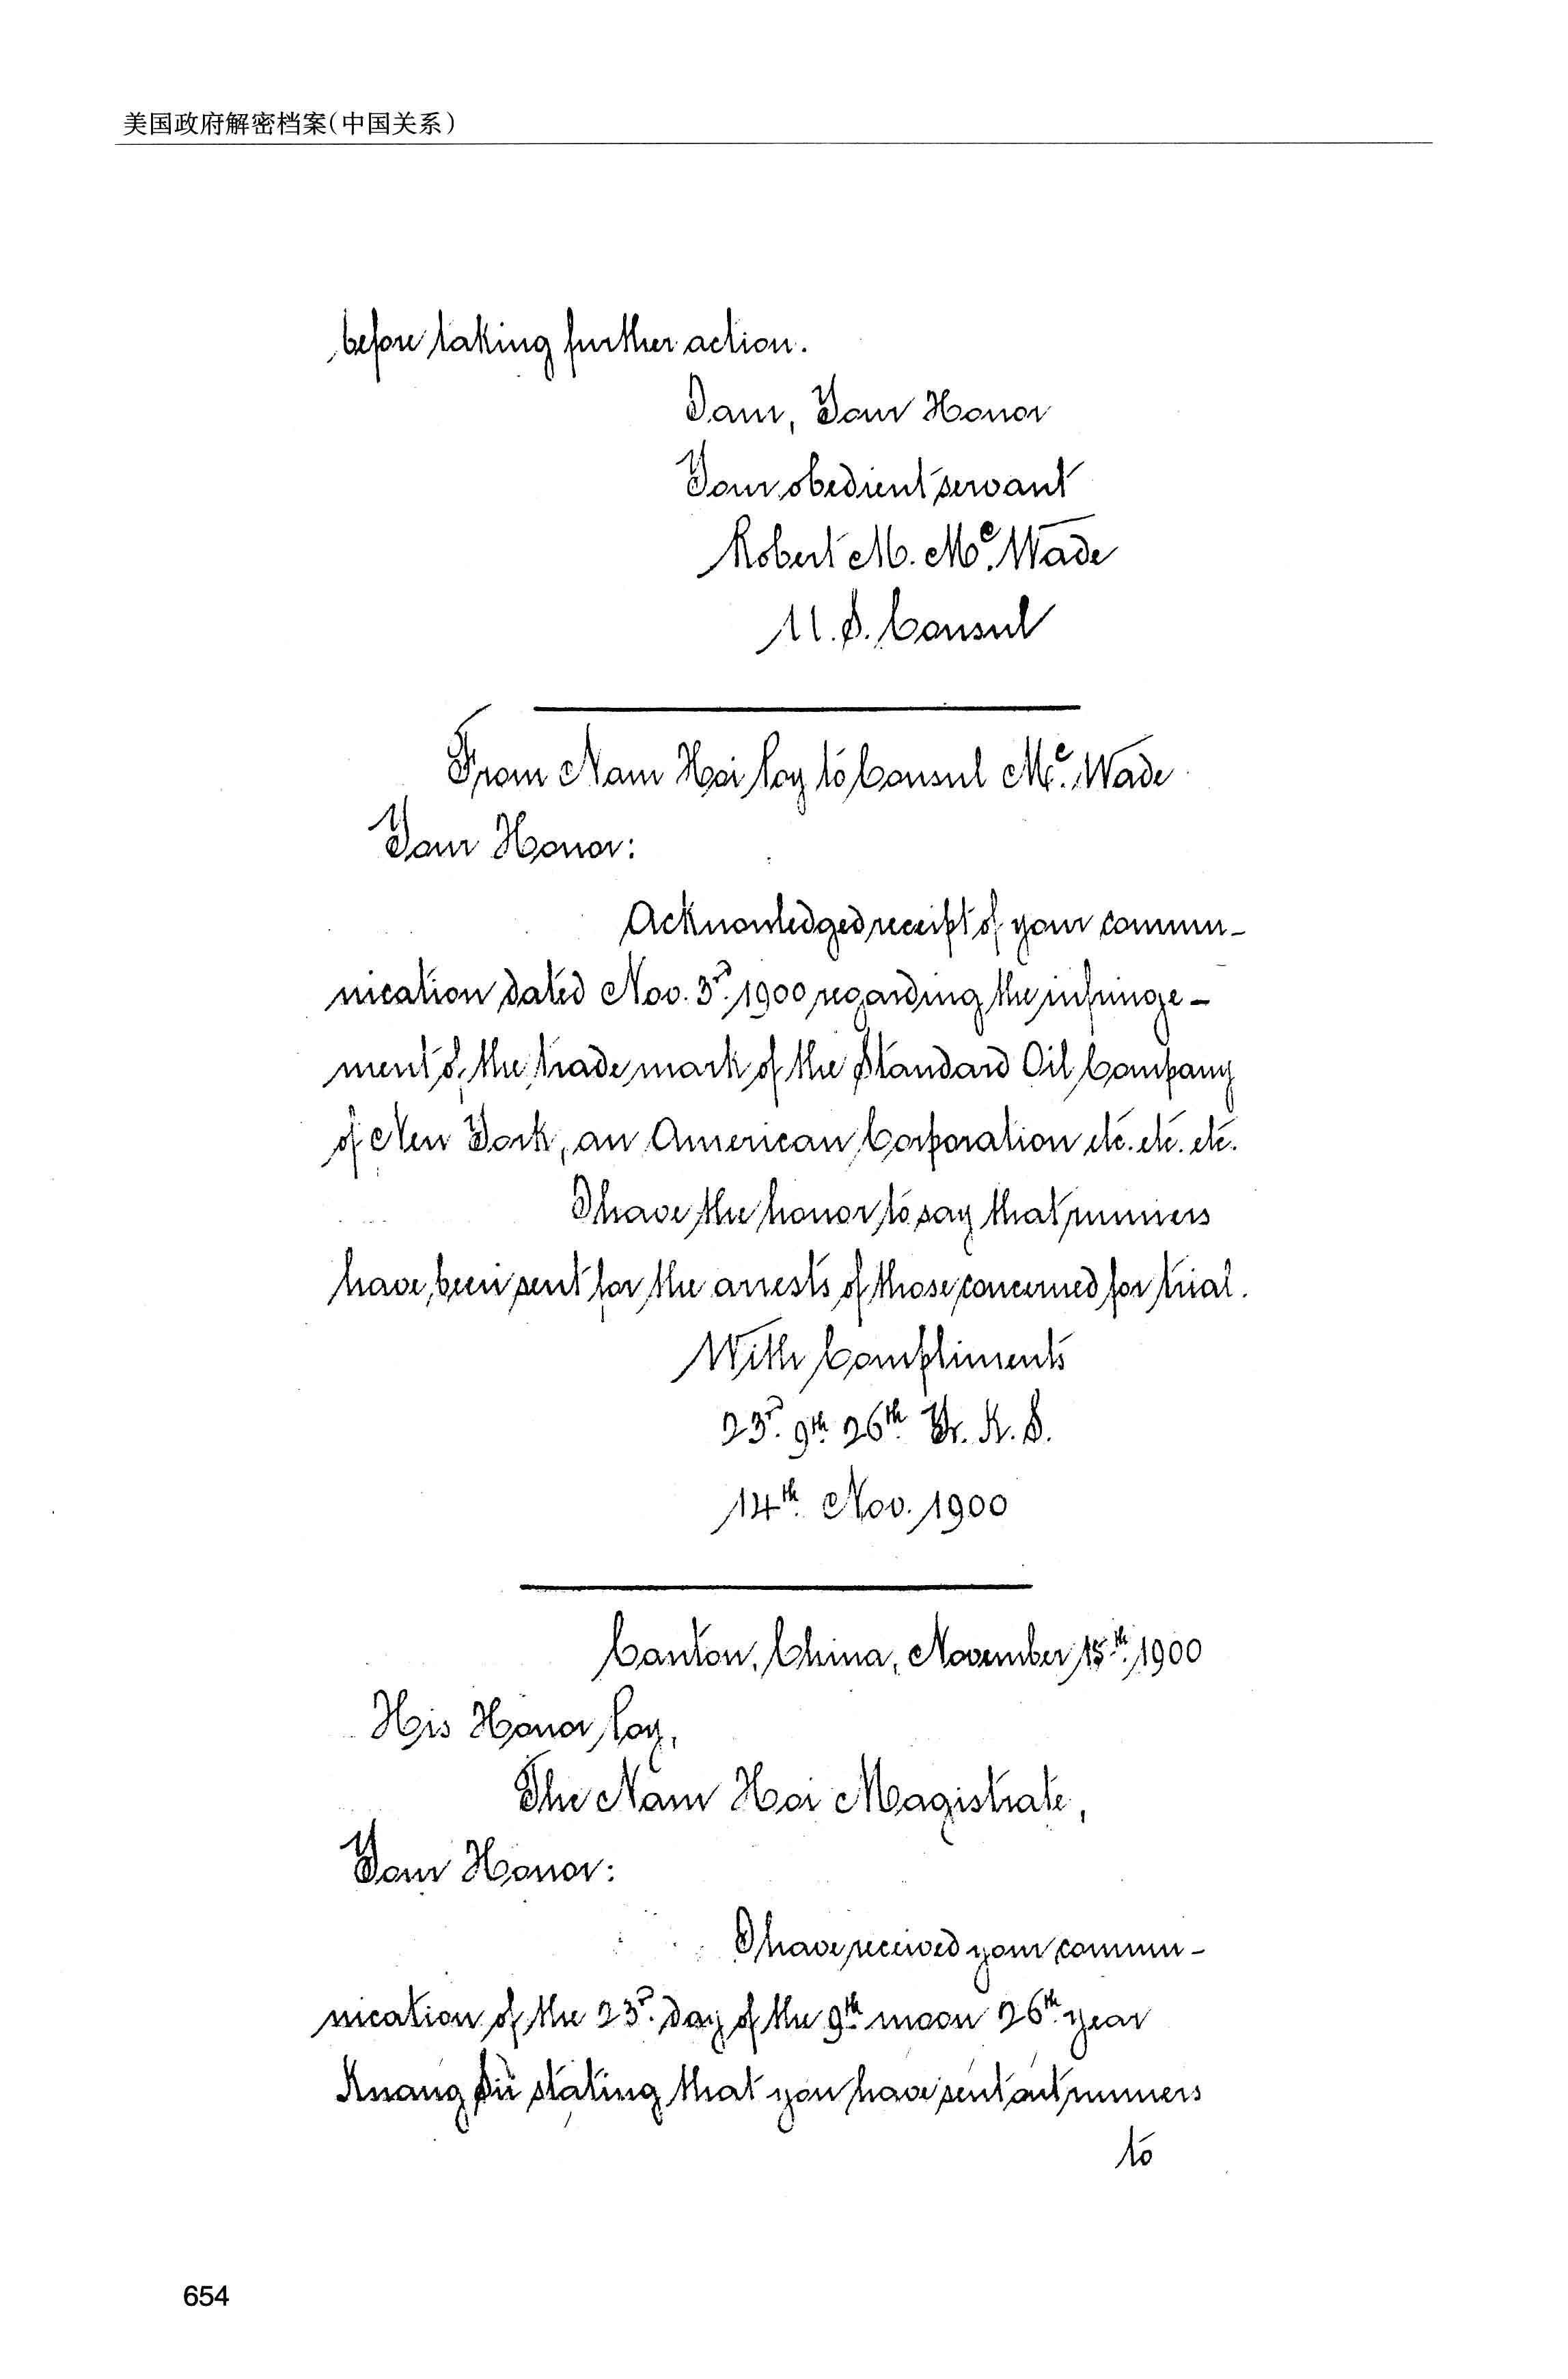 美国政府解密档案(中国关系)
before taking further action.
I am, Your Honor
Your obedient servant
Robert M. McWade
U. S. Consul
From Nam Hoi Loy to Consul McWade
Your Honor:
Acknowledged receipt of your commu-
nication dated Nov. 3rd. 1900 regarding the infringe-
ment of the trade mark of the Standard Oil Company
of New York, an American Corporation etc. etc. etc.
I have the honor to say that runners
have been sent for the arrests of those concerned for trial.
With Compliments
23rd. 9th. 26th. Yr. K. S.
14th. Nov. 1900
Canton, China, November 15th. 1900
His Honor Loy,
The Nam Hoi Magistrate,
Your Honor:
I have received your commu-
nication of the 23rd. day of the 9th. moon 26th. year
Kuang Sü stating that you have sent out runners
to
654